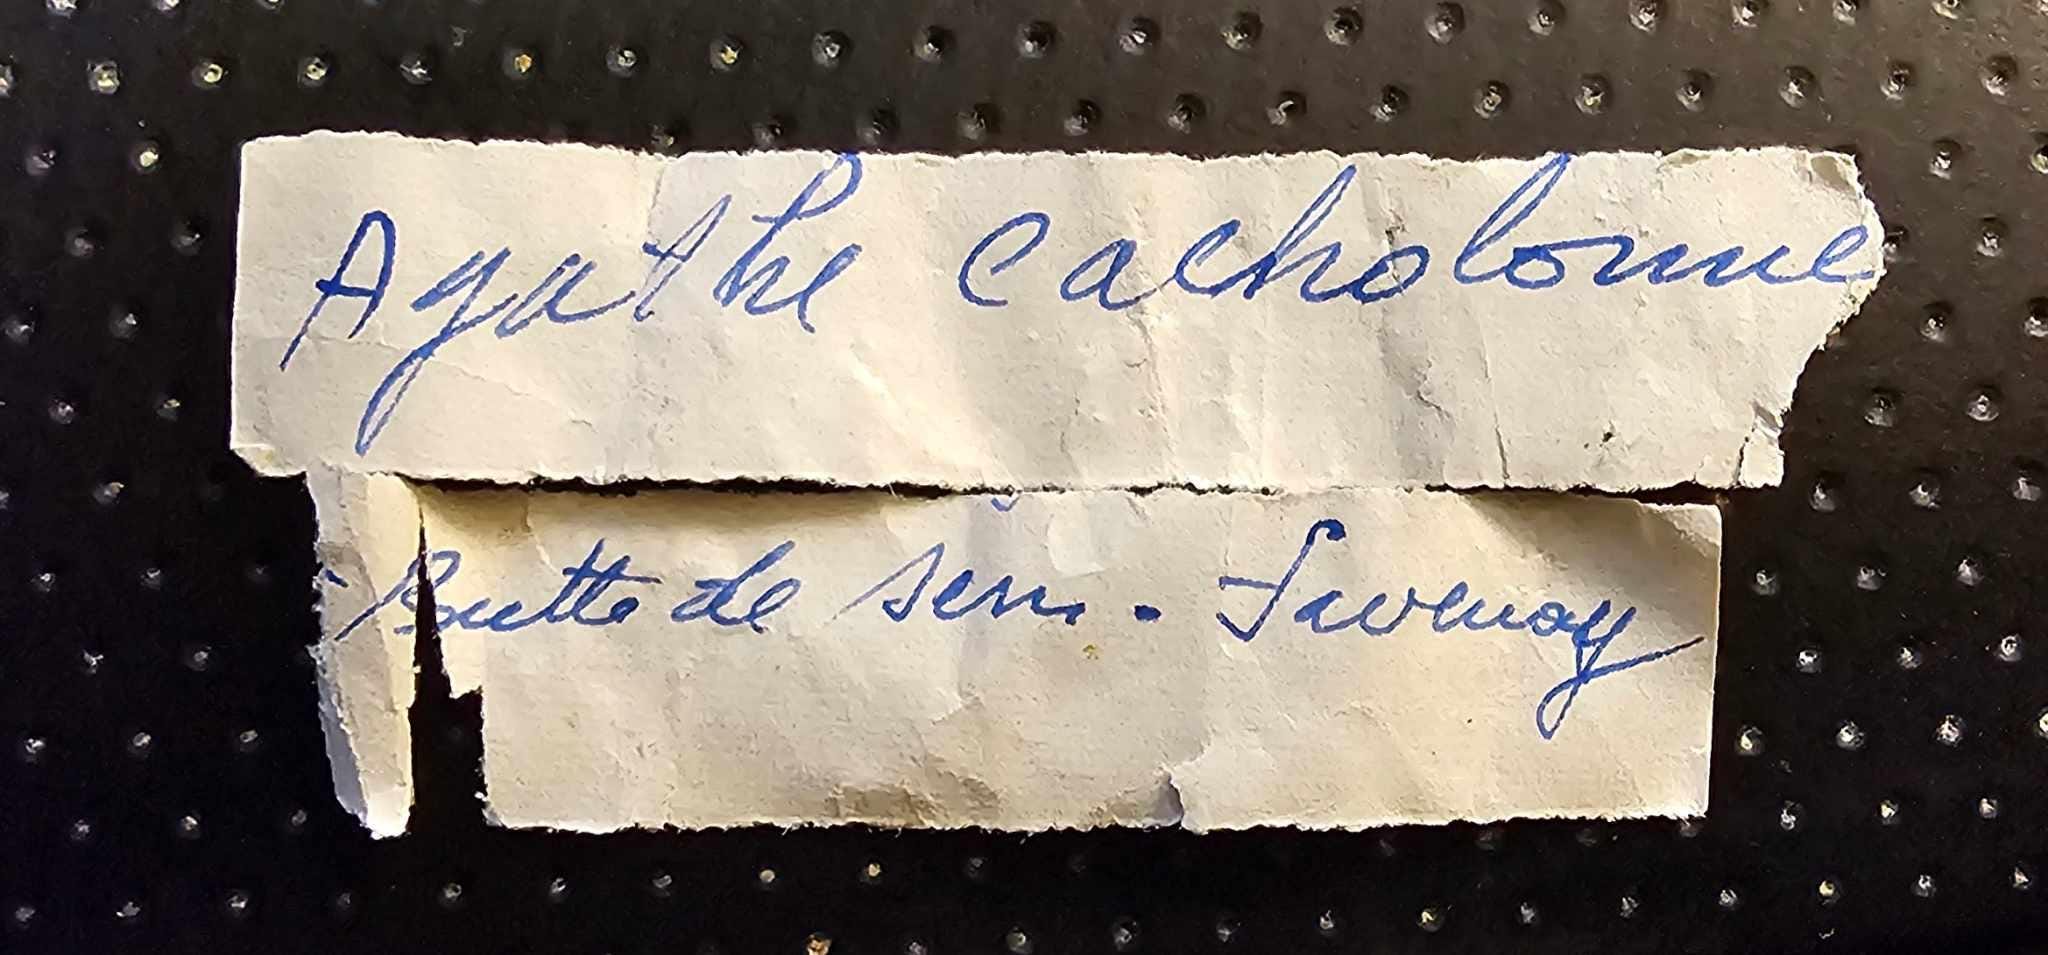 Agathe cacholonne
Butte de Sem. Savenay